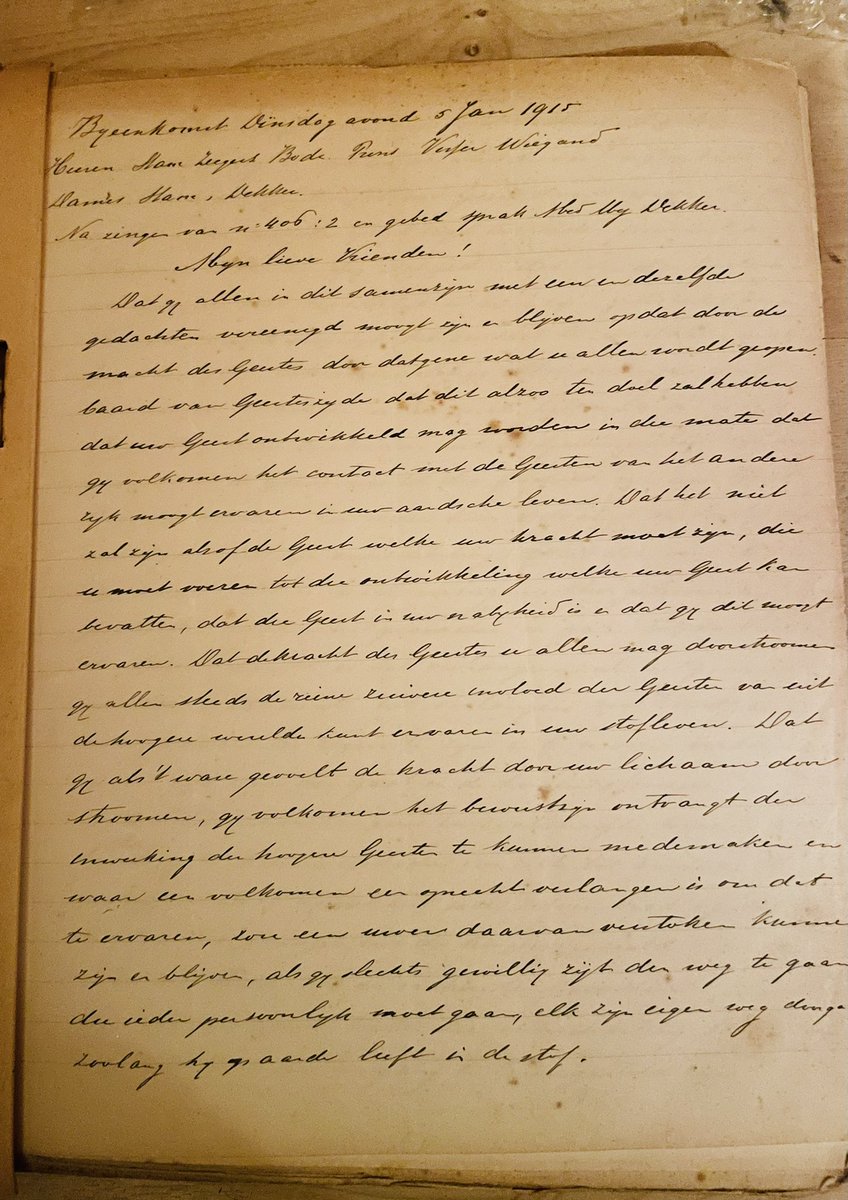 Byeenkomst Dinsdag avond 5 Jan 1915
Heeren Ham Zegers Bode. Prins Visser Wiegand
Dames Ham, Dekker.
Na zingen van no 406:2 en gebed sprak Med My Dekker.
Myn lieve Vrienden!
Dat gy allen in dit samenzyn met een en dezelfde
gedachten vereenigd moogt zyn en blyven opdat door de
macht des Geestes door datgene wat u allen wordt geopen-
baard van Geesteszyde dat dit alzoo ten doel zal hebben
dat uw Geest ontwikkeld mag worden in die mate dat
gy volkomen het contact met de Geesten van het andere
ryk moogt ervaren in uw aardsche leven. Dat het niet
zal zyn alsof de Geest welke uw kracht moet zyn, die
u moet voeren tot die ontwikkeling welke uw Geest kan
bevatten, dat die Geest in uw nabyheid is en dat gy dit moogt
ervaren. Dat de kracht des Geestes u allen mag doorstroomen
gy allen steeds de reine zuivere invloed der Geesten van uit
de hoogere werelden kunt ervaren in uw stofleven. Dat
gy als 't ware gevoelt de kracht door uw lichaam door
stroomen, gy volkomen het bewustzyn ontvangt der
inwerking der hoogere Geesten te kunnen medemaken en
waar een volkomen een oprecht verlangen is om dat
te ervaren, zou een uwer daarvan verstoken kunnen
zyn en blyven, als gy slechts gewillig zyt den weg te gaan
die ieder persoonlyk moet gaan, elk zyn eigen weg
zoolang hy op aarde leeft in de stof.